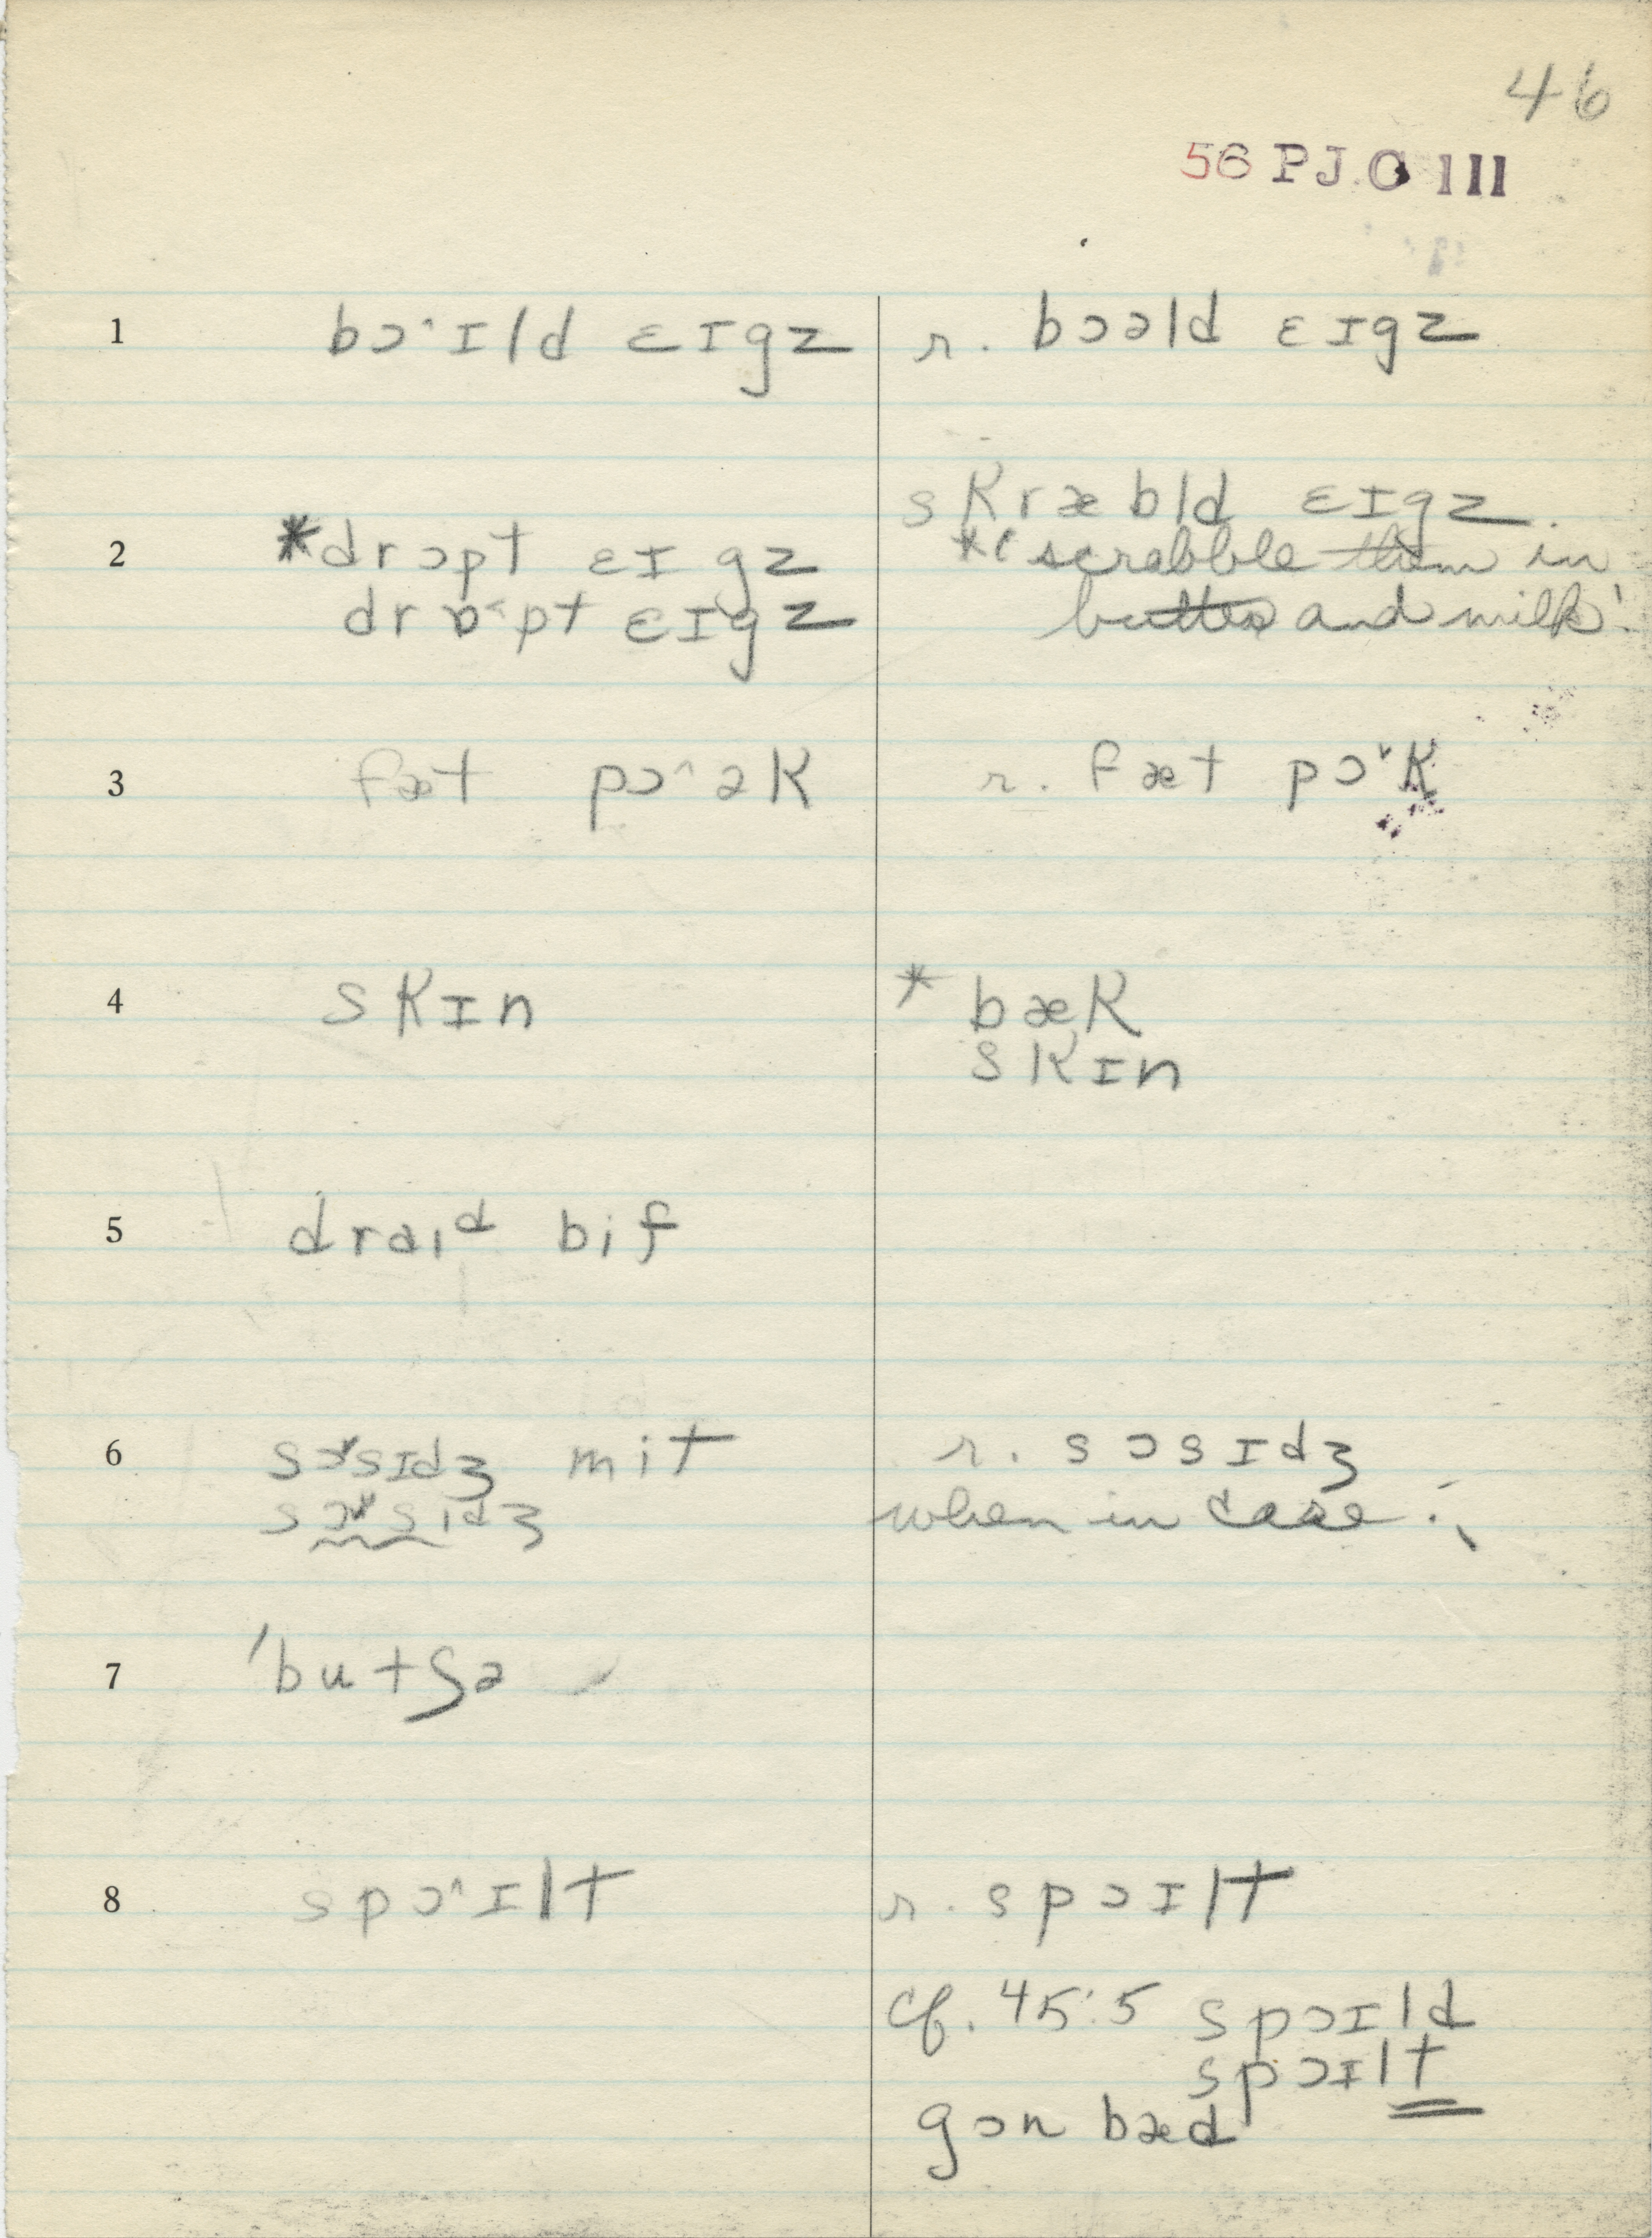 46
56 P J. O III
1 bɔ^ɪld ɛɪgz r. bɔəld ɛɪgz
skræbld ɛɪgz.
2 *drɔpt ɛɪgz *'scrabble them in
drɒ˂pt ɛɪgz butter and milk'
3 fæt pɔ^ək r. fæt pɔ˅k
4 skɪn * bæk
skɪn
5 draɪᵈ bif
6 sɔ˅sɪdʒ mit r. sɔsɪdʒ
sɔ˅sɪdʒ when in case.
7 'butʃə
8 spɔ^ɪlt r. spɔɪlt
cf. 45:5 spɔɪld
spɔɪlt
gɔn bæd